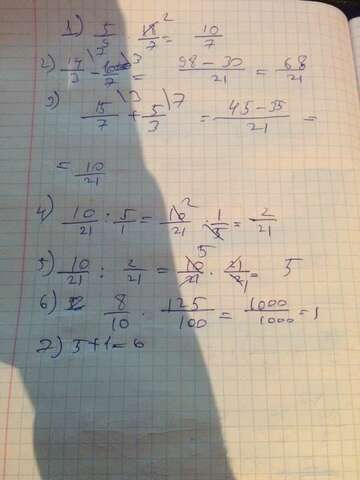 1) 5/9 · 18/7 2 = 10/7
2) 14/3 \7 - 10/7 \3 = 98-30/21 = 68/21
3) 15/7 \3 + 5/3 \7 = 45-35/21 =
= 10/21
4) 10/21 : 5/1 = 10/21 2 · 1/5 = 2/21
5) 10/21 : 2/21 = 10/21 5 · 21/2 1 = 5
6) 8/10 · 125/100 = 1000/1000 = 1
7) 5+1=6